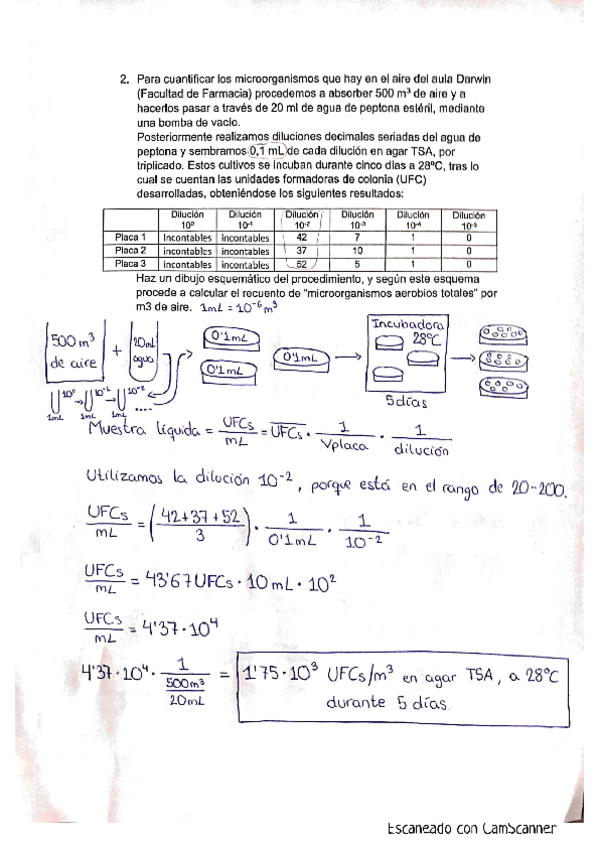 2. Para cuantificar los microorganismos que hay en el aire del aula Darwin
(Facultad de Farmacia) procedemos a absorber 500 m³ de aire y a
hacerlos pasar a través de 20 ml de agua de peptona estéril, mediante
una bomba de vacío.
Posteriormente realizamos diluciones decimales seriadas del agua de
peptona y sembramos 0,1 mL de cada dilución en agar TSA, por
triplicado. Estos cultivos se incuban durante cinco días a 28ºC, tras lo
cual se cuentan las unidades formadoras de colonia (UFC)
desarrolladas, obteniéndose los siguientes resultados:
Dilución 10⁰ Dilución 10⁻¹ Dilución 10⁻² Dilución 10⁻³ Dilución 10⁻⁴ Dilución 10⁻⁵
Placa 1 Incontables incontables 42 7 1 0
Placa 2 Incontables incontables 37 10 1 0
Placa 3 Incontables incontables 52 5 1 0
Haz un dibujo esquemático del procedimiento, y según este esquema
procede a calcular el recuento de "microorganismos aerobios totales" por
m3 de aire. 1mL = 10⁻⁶ m³
500 m³ de aire + 20mL agua
0'1mL
0'1mL
0'1mL
Incubadora
28ºC
5 días
10⁰ 10⁻¹ 10⁻² ....
1mL 1mL 1mL
Muestra líquida = UFCs/mL = UFCs · 1/Vplaca · 1/dilución
Utilizamos la dilución 10⁻², porque está en el rango de 20-200.
UFCs/mL = (42+37+52/3) · 1/0'1mL · 1/10⁻²
UFCs/mL = 43'67 UFCs · 10 mL · 10²
UFCs/mL = 4'37·10⁴
4'37·10⁴ · 1/(500m³/20mL) = 1'75·10³ UFCs/m³ en agar TSA, a 28ºC
durante 5 días.
Escaneado con CamScanner